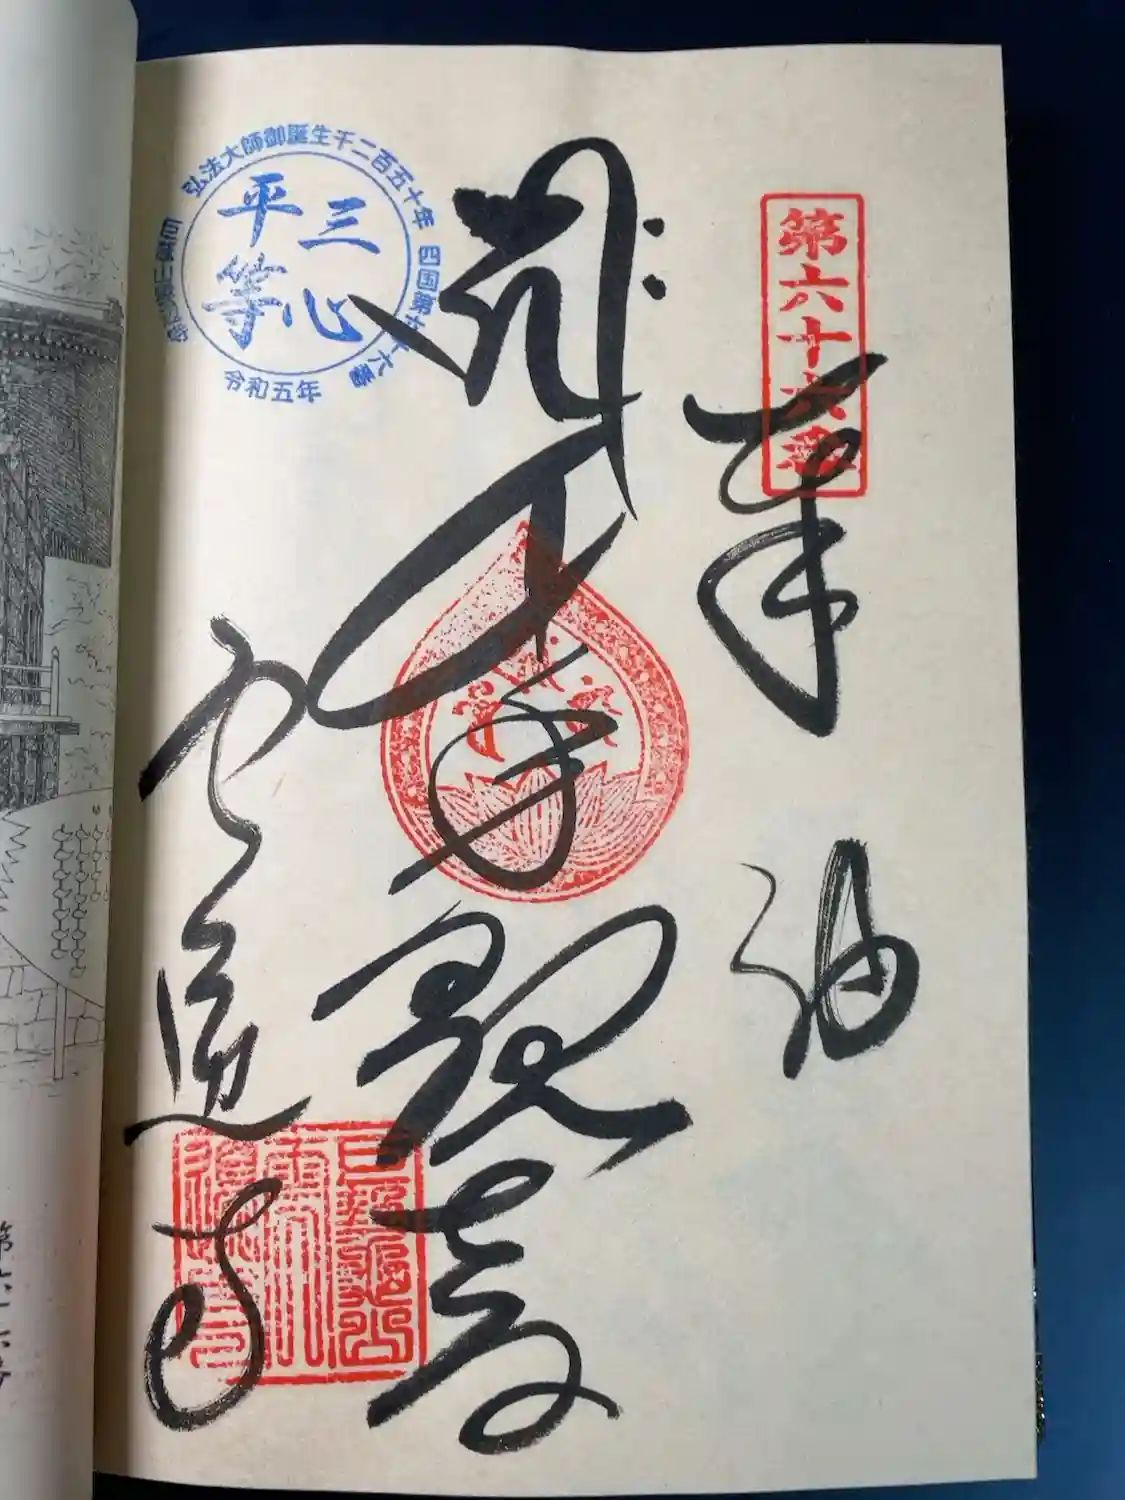 第六十六番
奉納
千手観音
雲辺寺
弘法大師御誕生千二百五十年
四国第六十六番
三心
平等
令和五年